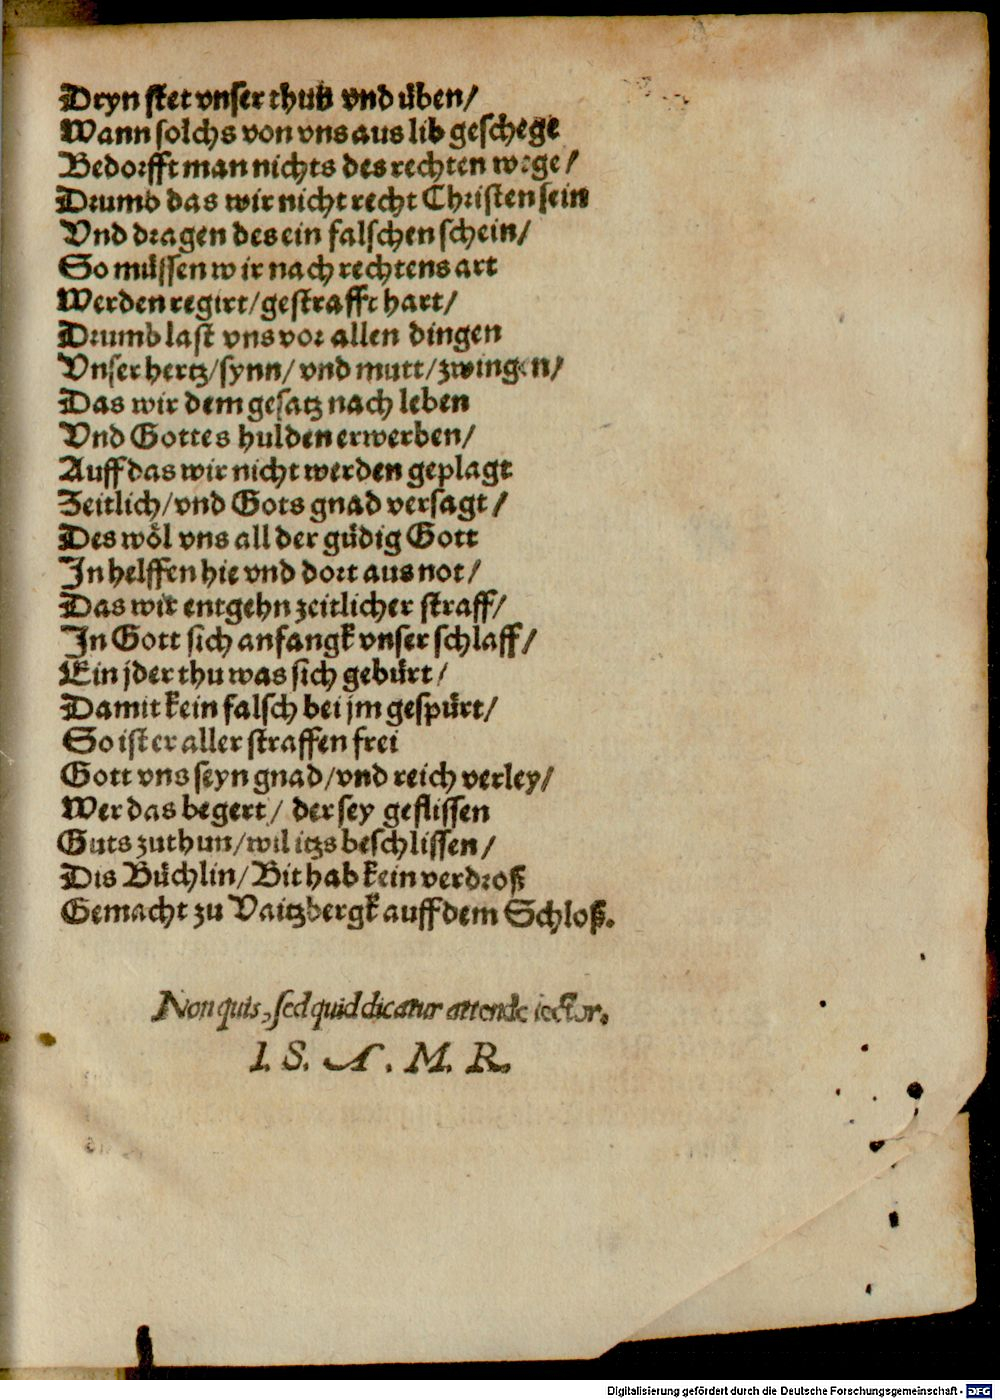 Dryn stet vnser thun vnd üben/
Wann solchs von vns aus lib geschege
Bedorfft man nichts des rechten wege/
Drumb das wir nicht recht Christen sein
Vnd dragen des ein falschen schein/
So müssen wir nach rechtens art
Werden regirt/gestrafft hart/
Drumb last vns vor allen dingen
Vnser hertz/synn/ vnd mutt/zwingen/
Das wir dem gesatz nach leben
Vnd Gottes hulden erwerben/
Auff das wir nicht werden geplagt
Zeitlich/vnd Gots gnad versagt/
Des wöl vns all der güdig Gott
In helffen hie vnd dort aus not/
Das wir entgehn zeitlicher straff/
In Gott sich anfangk vnser schlaff/
Ein jder thu was sich gebürt/
Damit kein falsch bei jm gespürt/
So ist er aller straffen frei
Gott vns seyn gnad/vnd reich verley/
Wer das begert/ der sey geflissen
Guts zuthun/wil itzs beschlissen/
Dis Büchlin/Bit hab kein verdroß
Gemacht zu Vaitzbergk auff dem Schloß.
Non quis, sed quid dicatur attende lector.
I. S. A. M. R.
Digitalisierung gefördert durch die Deutsche Forschungsgemeinschaft - DFG